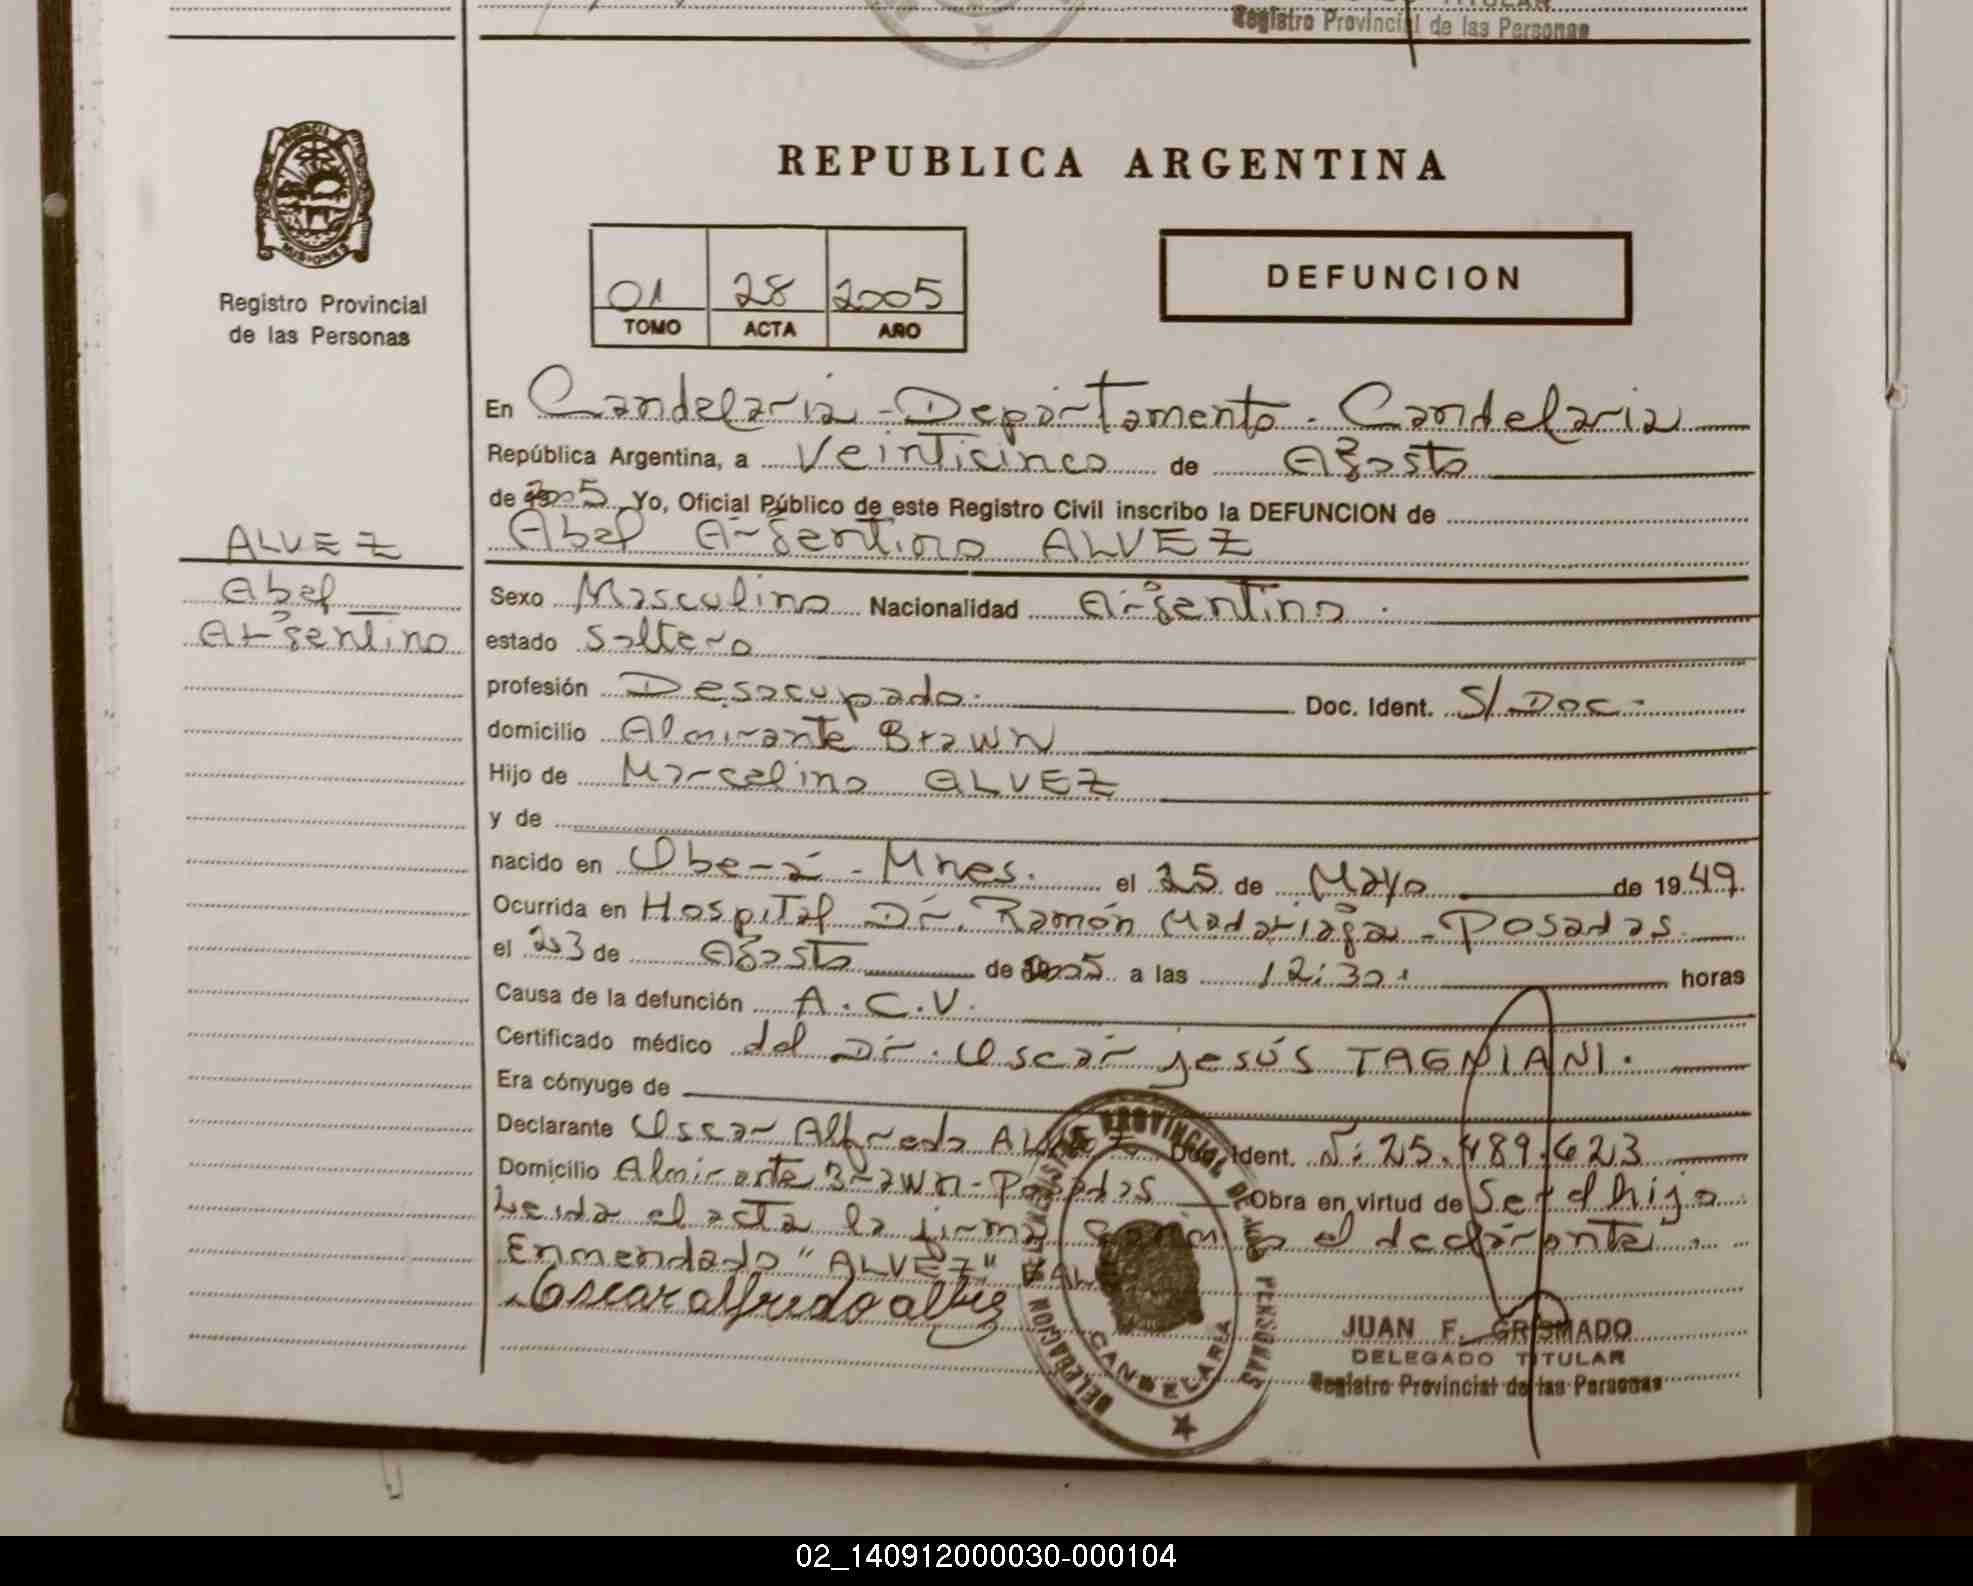 TITULAR
Registro Provincial de las Personas
REPUBLICA ARGENTINA
MISIONES
Registro Provincial
de las Personas
01 28 2005
TOMO ACTA AÑO
DEFUNCION
En Candelaria - Departamento - Candelaria
República Argentina, a Veinticinco de Agosto
de 2005 Yo, Oficial Público de este Registro Civil inscribo la DEFUNCION de
Abel Argentino ALVEZ
ALVEZ
Abel
Argentino
Sexo Masculino Nacionalidad Argentino.
estado Soltero
profesión Desocupado. Doc. Ident. S/Doc-
domicilio Almirante Brawn
Hijo de Marcelino ALVEZ
y de
nacido en Oberá - Mnes. el 25 de Mayo de 1949.
Ocurrida en Hospital Dr. Ramón Madariaga - Posadas
el 23 de Agosto de 2005 a las 12:30. horas
Causa de la defunción A.C.V.
Certificado médico del Dr. Oscar Jesús TAGNIANI.
Era cónyuge de
Declarante Oscar Alfredo ALVEZ Doc. Ident. N: 25.489.623
Domicilio Almirante Brawn - Posadas Obra en virtud de Ser el hijo
Leida el acta la firma el declarante.
Enmendado "ALVEZ" VALE
Oscar alfredo alvez
DELEGACION REGISTRO PROVINCIAL DE LAS PERSONAS
CANDELARIA
JUAN F. GRISMADO
DELEGADO TITULAR
Registro Provincial de las Personas
02_140912000030-000104